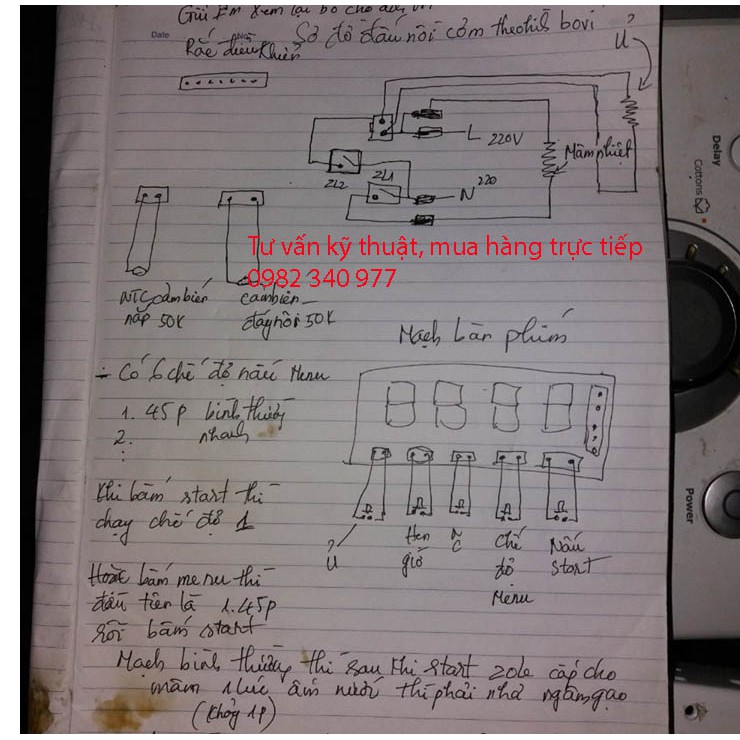 Gửi Em xem lại bo cho
Date
Sơ đồ đấu nối cơm theo bovi
Rắc điều khiển
Ủ
L 220V
Mâm nhiệt
ZL2
ZL1
N 220
Delay
Cottons
Tư vấn kỹ thuật, mua hàng trực tiếp
0982 340 977
NTC cảm biến
nắp 50K
cảm biến
đáy nồi 50K
Mạch bàn phím
Có 6 chế độ nấu Menu
1. 45p bình thường
2. nhanh
Khi bấm start thì
chạy chế độ 1
Ủ
Hẹn
giờ
N
C
chế
độ
Menu
Nấu
start
Power
Hoặc bấm menu thì
đầu tiên là 1.45p
rồi bấm start
Mạch bình thường thì sau khi start zole cấp cho
mâm 1 lúc ấm nước thì phải nhả ngâm gạo
(khỏng 1p)